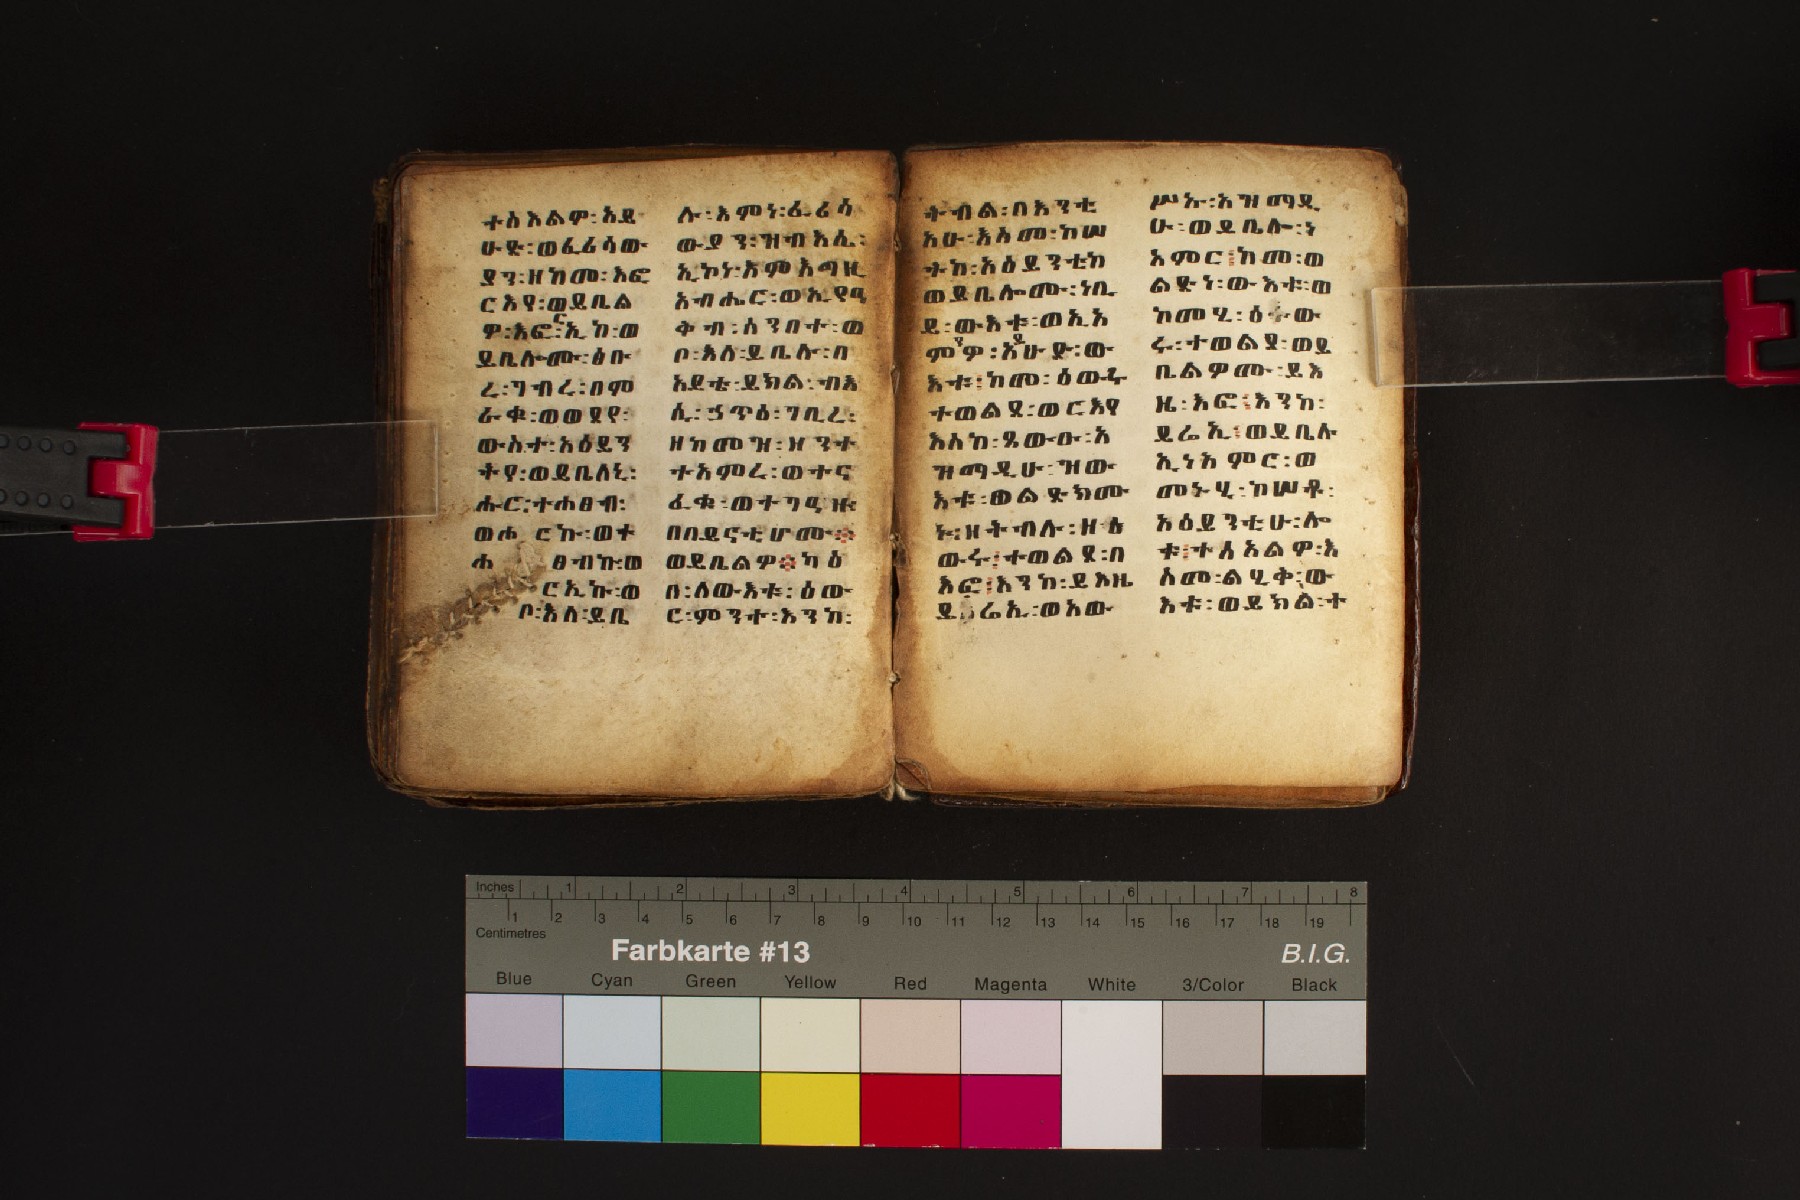 ተስእልዎ፡አይ
ሁድ፡ወፈሪሳው
ያን፡ዘከመ፡እፎ
ርእየ፡ወይቤል
ዎ፡እፎ፡ርኢከ፡ወ
ይቤሎሙ፡ፅቡ
ረ፡ገብረ፡በም
ራቁ፡ወወደየ፡
ውስተ፡አዕይን
ትየ፡ወይቤለኒ፡
ሑር፡ተሐፀብ፡
ወሐርኩ፡ወተ
ሐፀብኩ፡ወ
ርኢኩ፡ወ
ቦ፡እለ፡ይቤ
ሉ፡እምነ፡ፈሪሳ
ውያን፡ዝብእሲ፡
ኢኮነ፡እምእግዚ
አብሔር፡ወኢየዓ
ቅብ፡ሰንበተ፡ወ
ቦ፡እለ፡ይቤሉ፡በ
አይቴ፡ይክል፡ብእ
ሲ፡ኃጥዕ፡ገቢረ፡
ዘከመዝ፡ዘንተ
ተአምረ፡ወተና
ፈቁ፡ወተጋዓዙ
በበይናቲሆሙ፨
ወይቤልዎ፨ካዕ
በ፡ለውእቱ፡ዕው
ር፡ምንተ፡እንከ፡
ትብል፡በእንቲ
አሁ፡እስመ፡ከሠ
ተከ፡አዕይንቲከ
ወይቤሎሙ፡ነቢ
ይ፡ውእቱ፡ወኢአ
ምንዎ፡አይሁድ፡ው
እቱ፡ከመ፡ዕውሩ
ተወልደ፡ወርእየ
እስከ፡ጼውዑ፡አ
ዝማዲሁ፡ዝው
እቱ፡ወልድክሙ
ኑ፡ዘትብሉ፡ዘዕ
ውሩ፡ተወልደ፡በ
እፎ፡እንከ፡ይእዜ
ይሬኢ፡ወአው
ሥኡ፡አዝማዲ
ሁ፡ወይቤሉ፡ነ
አምር፡ከመ፡ወ
ልድነ፡ውእቱ፡ወ
ከመሂ፡ዕው
ሩ፡ተወልደ፡ወይ
ቤልዎሙ፡ይእ
ዜ፡እፎ፡እንከ፡
ይሬኢ፡ወይቤሉ
ኢነአምር፡ወ
መኑሂ፡ከሠቶ፡
አዕይንቲሁ፡ሎ
ቱ፡ተስአልዎ፡እ
ስመ፡ልሂቅ፡ው
እቱ፡ወይክል፡ተ
Inches 1 2 3 4 5 6 7 8
1 2 3 4 5 6 7 8 9 10 11 12 13 14 15 16 17 18 19
Centimetres
Farbkarte #13 B.I.G.
Blue Cyan Green Yellow Red Magenta White 3/Color Black